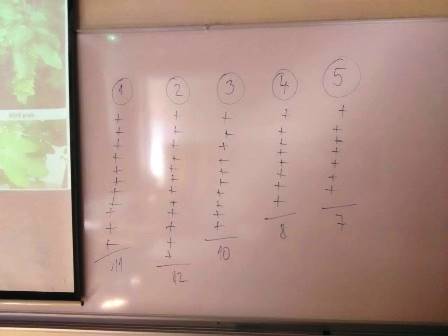 1 2 3 4 5
+ + + + +
+ + + + +
+ + + + +
+ + + + +
+ + + + +
+ + + + +
+ + + + +
+ + + +
+ + +
+ + +
+ +
+
11 12 10 8 7